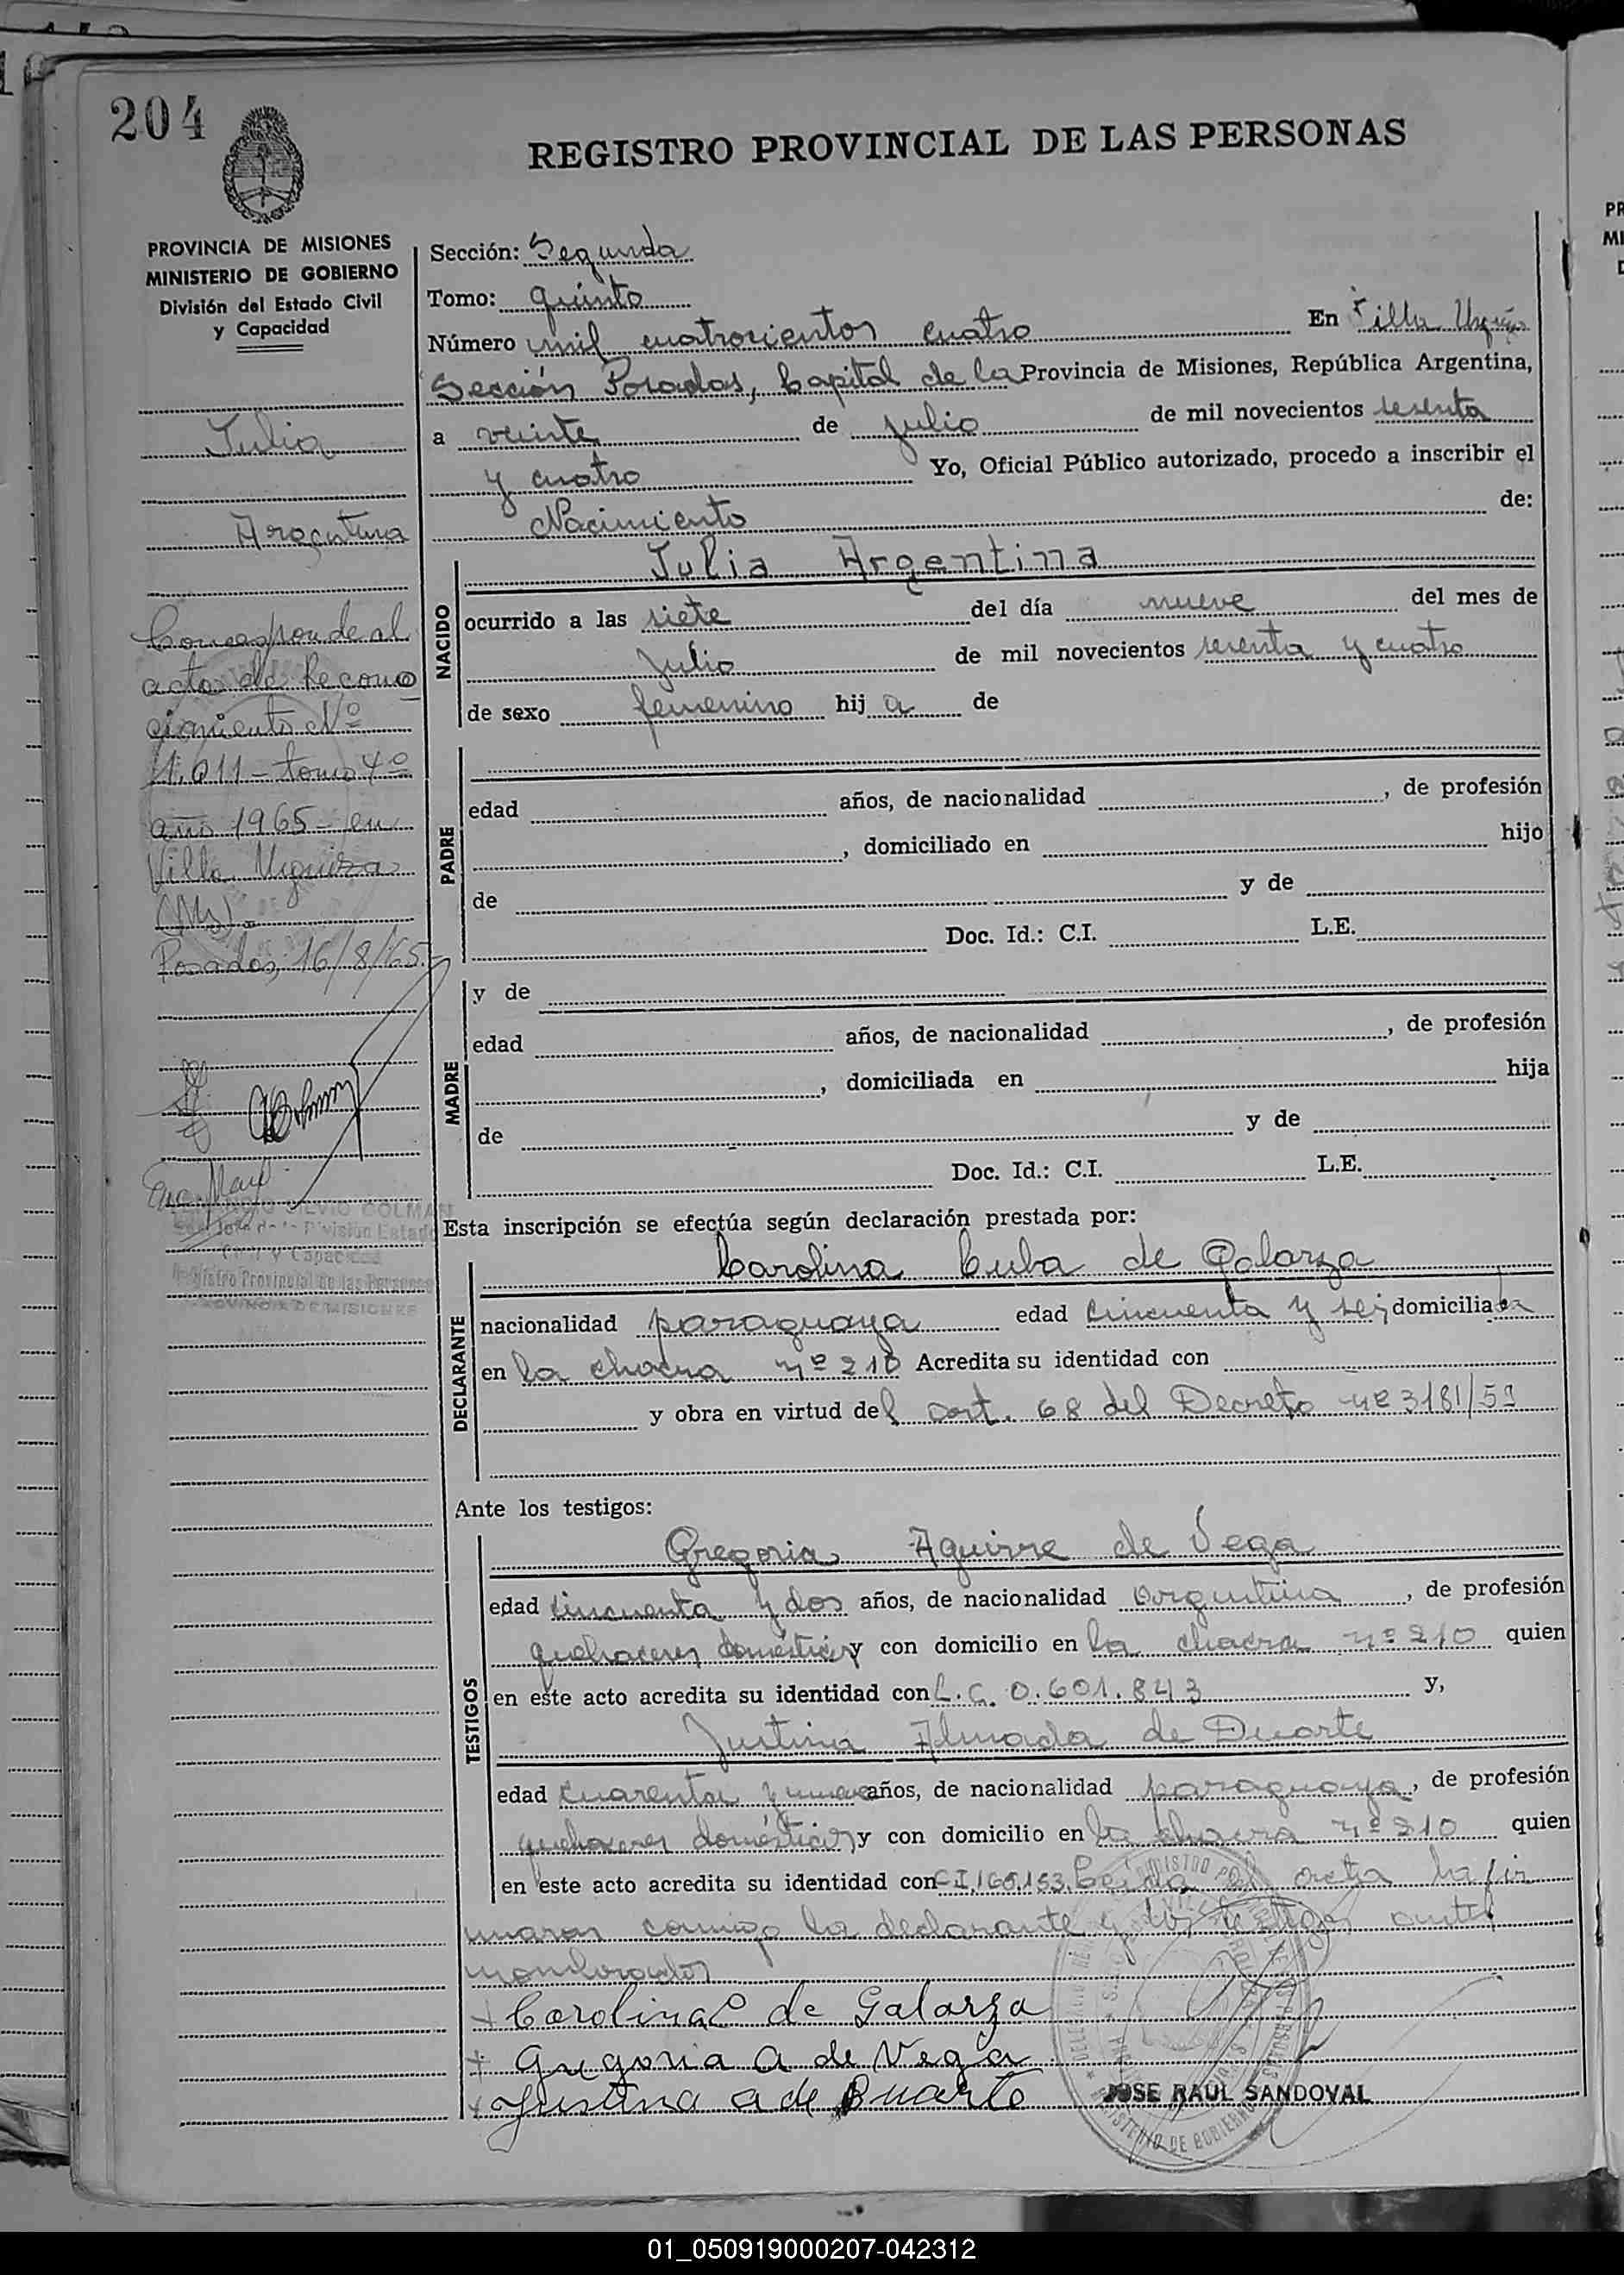 204
REGISTRO PROVINCIAL DE LAS PERSONAS
PROVINCIA DE MISIONES
MINISTERIO DE GOBIERNO
División del Estado Civil
y Capacidad
Julia
Argentina
Corresponde al
acta de Recono
cimiento Nº
1.011 - tomo 4º
año 1965 - en
Villa Urquiza
(Ms).
Posadas, 16/8/65.
SILVIO COLMAN
Jefe de la División Estado
Civil y Capacidad
Registro Provincial de las Personas
PROVINCIA DE MISIONES
Sección: Segunda
Tomo: quinto
Número mil cuatrocientos cuatro En Villa Urquiza
Sección Posadas, Capital de la Provincia de Misiones, República Argentina,
a veinte de julio de mil novecientos sesenta
y cuatro Yo, Oficial Público autorizado, procedo a inscribir el
Nacimiento de:
NACIDO
Julia Argentina
ocurrido a las siete del día nueve del mes de
Julio de mil novecientos sesenta y cuatro
de sexo femenino hij a de
PADRE
edad años, de nacionalidad , de profesión
, domiciliado en hijo
de y de
Doc. Id.: C.I. L.E.
MADRE
y de
edad años, de nacionalidad , de profesión
, domiciliada en hija
de y de
Doc. Id.: C.I. L.E.
Esta inscripción se efectúa según declaración prestada por:
DECLARANTE
Carolina Cuba de Galarza
nacionalidad paraguaya edad cincuenta y seis domiciliada
en la chacra nº 210 Acredita su identidad con
y obra en virtud del art. 68 del Decreto nº 3181/59
Ante los testigos:
TESTIGOS
Gregoria Aguirre de Vega
edad cincuenta y dos años, de nacionalidad argentina , de profesión
quehaceres domésticos y con domicilio en la chacra nº 210 quien
en este acto acredita su identidad con L.C. 0.601.843 y,
Justina Almada de Duarte
edad cuarenta y nueve años, de nacionalidad paraguaya , de profesión
quehaceres domésticos y con domicilio en la chacra nº 210 quien
en este acto acredita su identidad con C.I. 160.153. Leída el acta la fir
maron conmigo la declarante y los testigos antes
mencionados
Carolina C de Galarza
Gregoria A de Vega
Justina A de Duarte
JOSE RAUL SANDOVAL
01_050919000207-042312